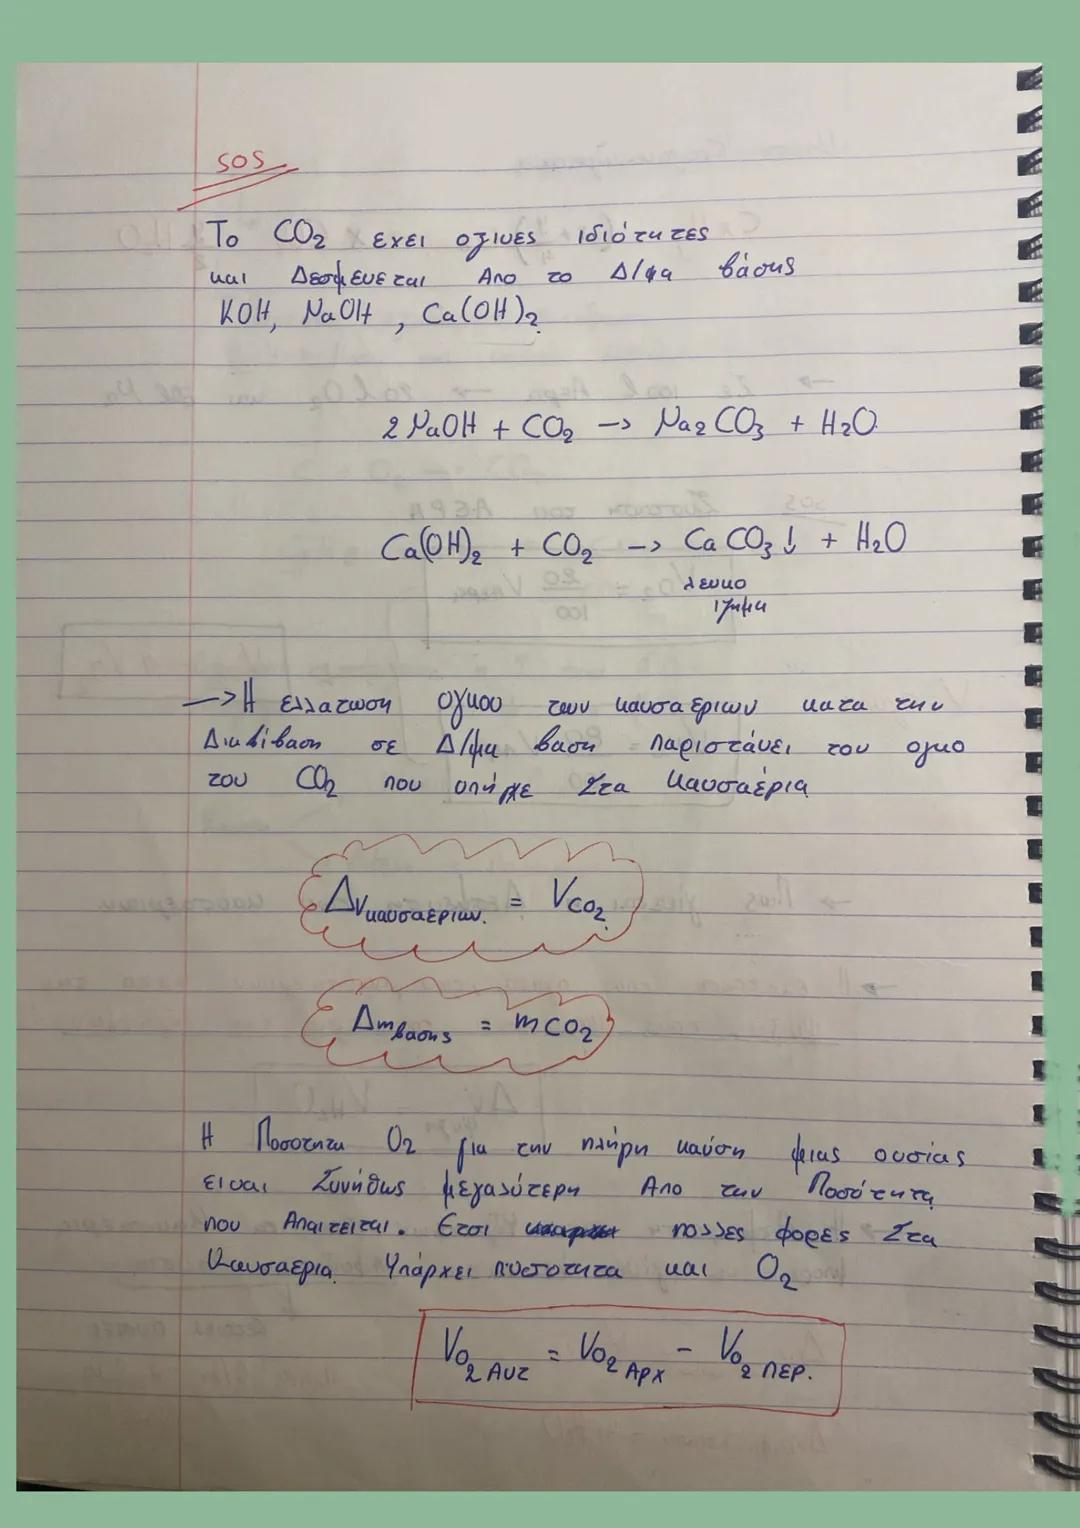 SOS
Το CO2 εχει οξινες ιδιότητες
και Δεσμευεται Απο το Δ/μα βάσης
KOH, NaOH, Ca(OH)2
2 NaOH + CO2 -> Na2CO3 + H2O
Ca(OH)2 + CO2 -> CaCO3↓ + H2O
λευκο
ιζημα
-> Η ελλατωση ογκου των καυσαεριων κατα την
Διαβίβαση σε Δ/μα βαση παριστάνει τον ογκο
του CO2 που υπήρχε Στα καυσαέρια
ΔVκαυσαεριων. = VCO2
Δmβασης = mCO2
Η Ποσοτητα O2 για την πλήρη καύση μιας ουσίας
ειναι Συνήθως μεγαλύτερη Απο την Ποσότητα
που Απαιτειται. Ετσι πολλες φορες Στα
Καυσαερια Υπάρχει ποσοτητα και O2
VO2 Αντ = VO2 Αρχ - VO2 περ.